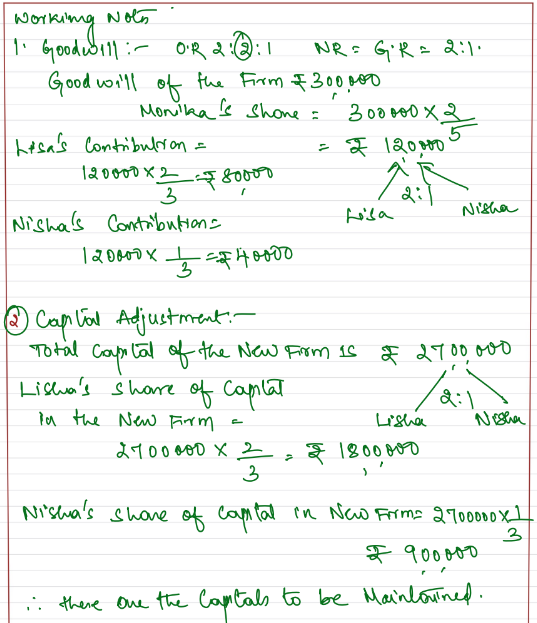 Working Note
1. Goodwill :- O.R 2:2:1 NR = G.R = 2:1.
Goodwill of the Firm ₹300,000
Monika's Share = 300000 × 2/5
Lisa's Contribution = = ₹ 120,000
120000 × 2/3 = ₹80000
2:1
Lisa Nisha
Nisha's Contribution =
120000 × 1/3 = ₹40000
2 Capital Adjustment:-
Total Capital of the New Firm is ₹ 2700,000
Lisha's share of Capital
2:1
in the New Firm = Lisha Nisha
2700000 × 2/3 = ₹ 1800000
Nisha's share of Capital in New Firm = 2700000 × 1/3
₹ 900000
∴ these are the Capitals to be Maintained.